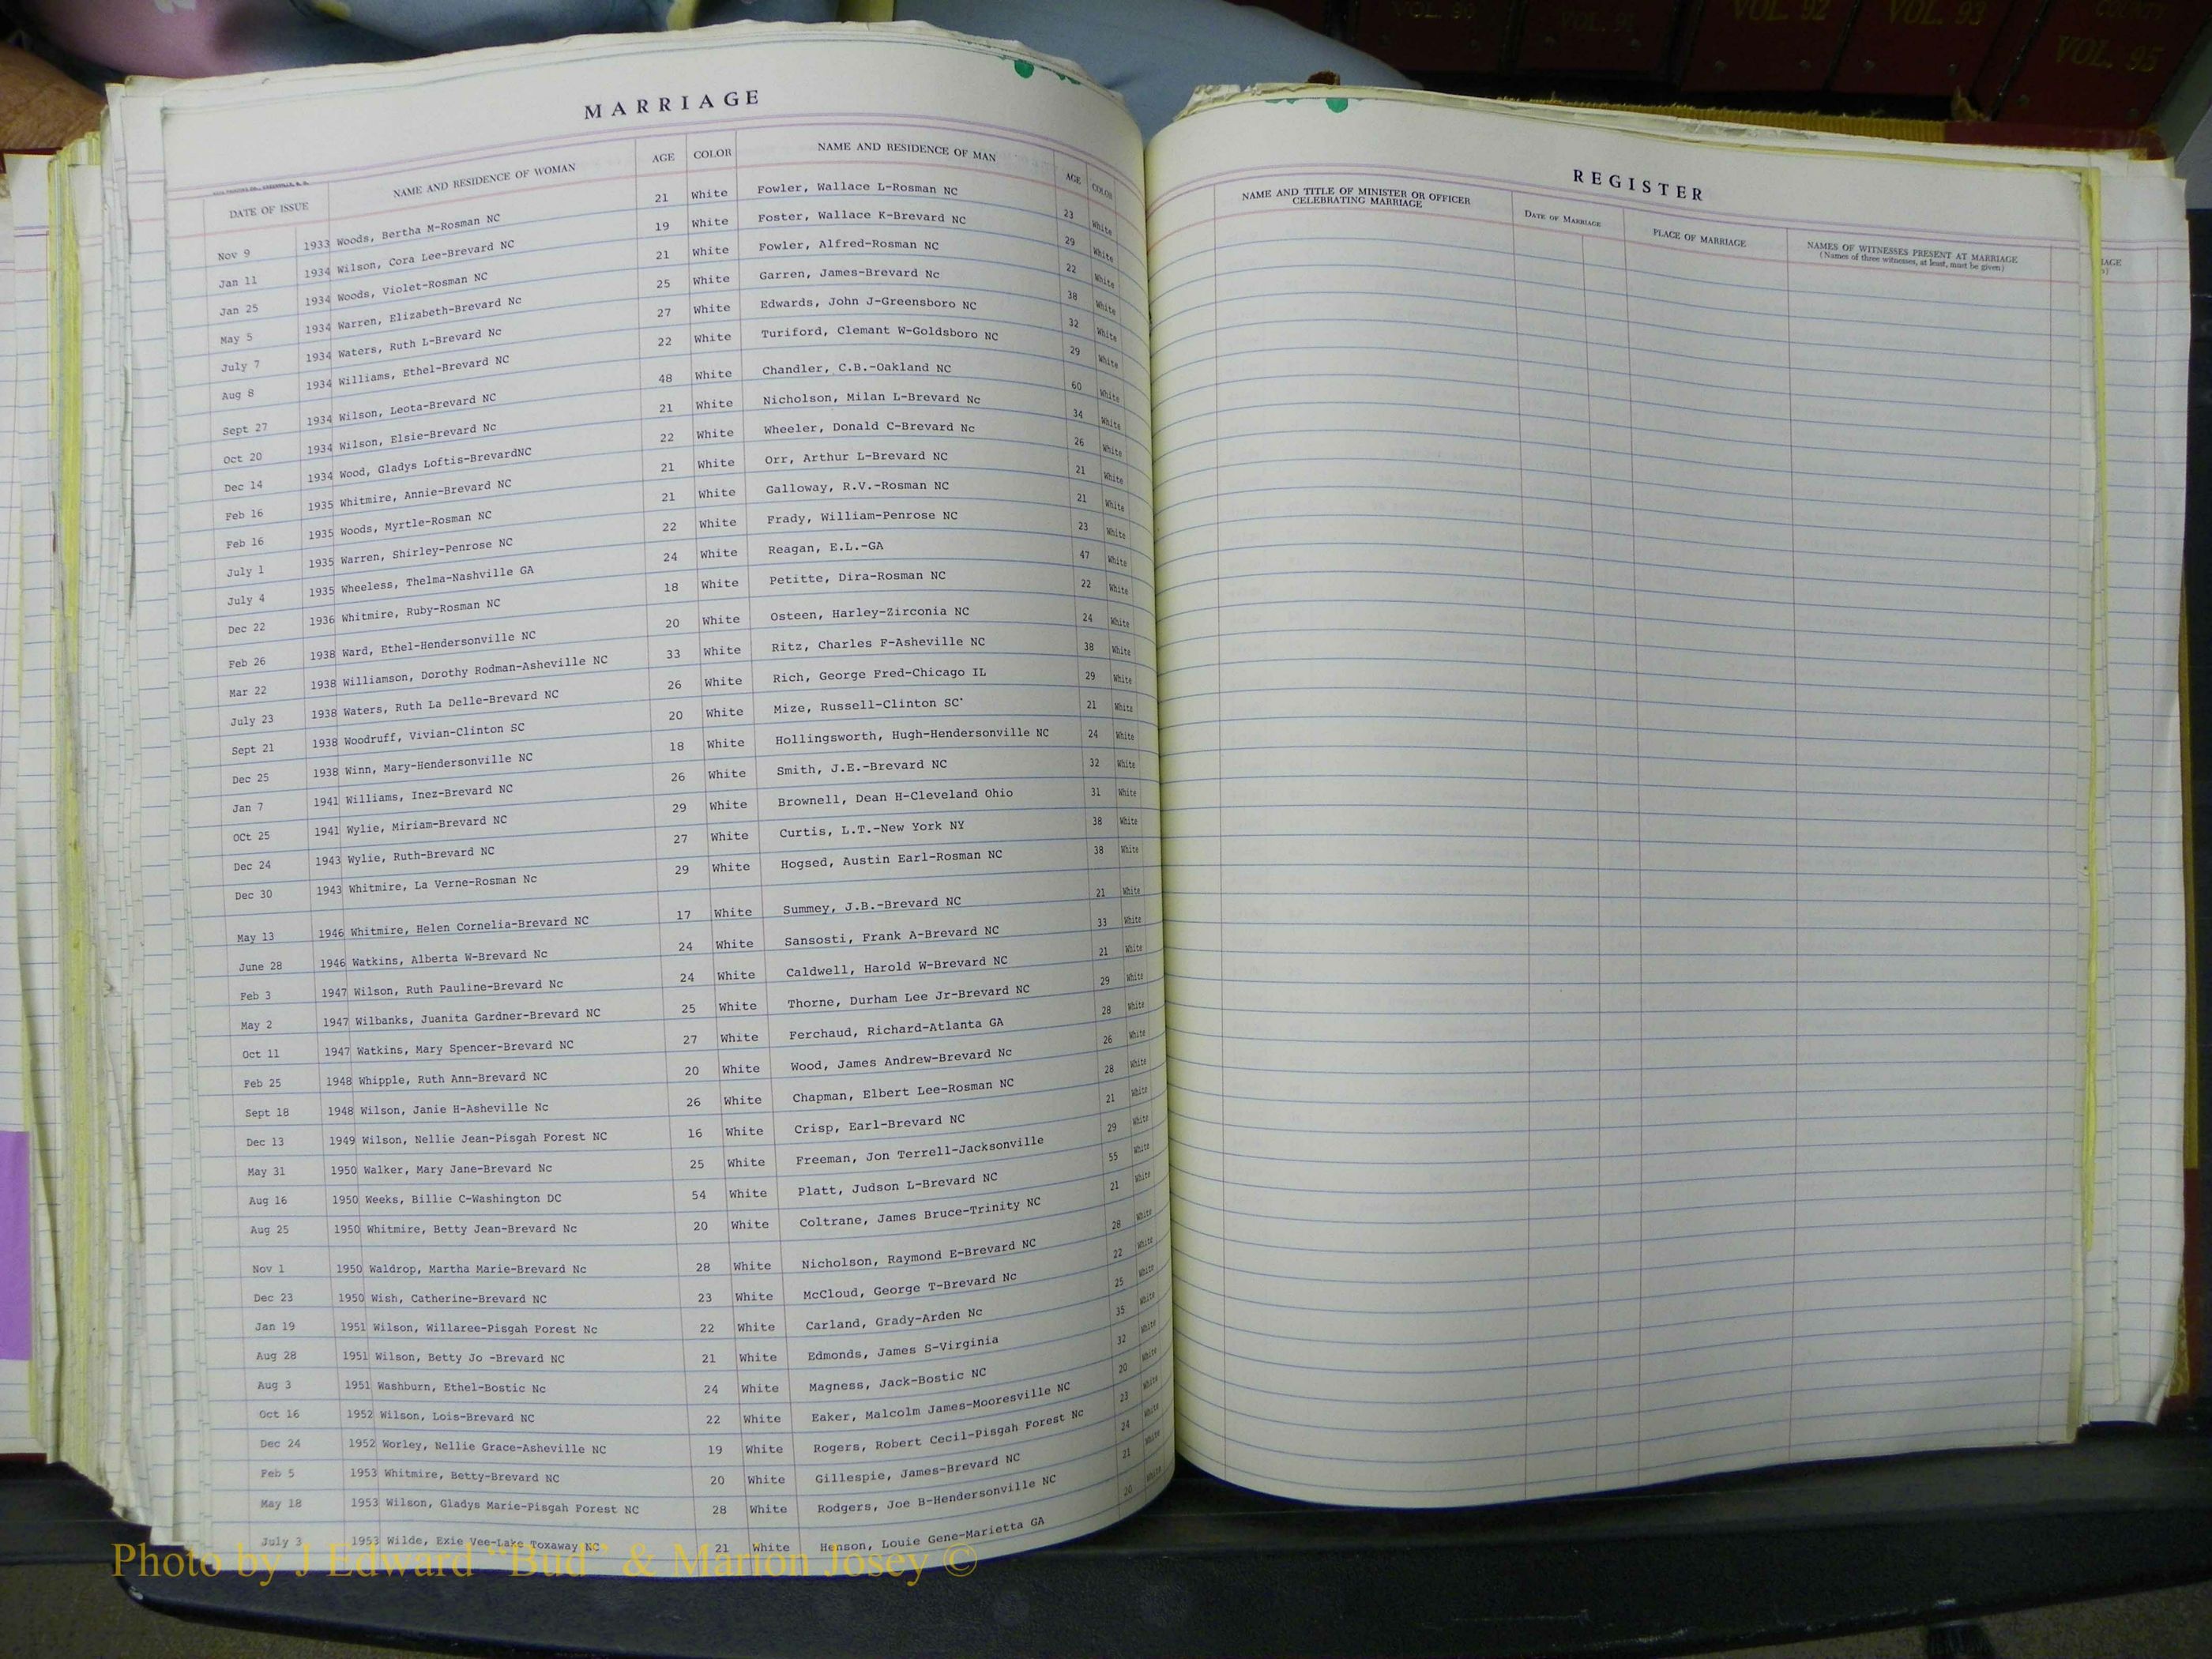 VOL. 92
VOL. 93
COUNTY
VOL. 95
MARRIAGE
DATE OF ISSUE NAME AND RESIDENCE OF WOMAN AGE COLOR NAME AND RESIDENCE OF MAN AGE COLOR
Nov 9 1933 Woods, Bertha M-Rosman NC 21 White Fowler, Wallace L-Rosman NC 23 White
Jan 11 1934 Wilson, Cora Lee-Brevard NC 19 White Foster, Wallace K-Brevard NC 29 White
Jan 25 1934 Woods, Violet-Rosman NC 21 White Fowler, Alfred-Rosman NC 22 White
May 5 1934 Warren, Elizabeth-Brevard Nc 25 White Garren, James-Brevard Nc 38 White
July 7 1934 Waters, Ruth L-Brevard Nc 27 White Edwards, John J-Greensboro NC 32 White
Aug 8 1934 Williams, Ethel-Brevard NC 22 White Turiford, Clemant W-Goldsboro NC 29 White
Sept 27 1934 Wilson, Leota-Brevard NC 48 White Chandler, C.B.-Oakland NC 60 White
Oct 20 1934 Wilson, Elsie-Brevard Nc 21 White Nicholson, Milan L-Brevard Nc 34 White
Dec 14 1934 Wood, Gladys Loftis-BrevardNC 22 White Wheeler, Donald C-Brevard Nc 26 White
Feb 16 1935 Whitmire, Annie-Brevard NC 21 White Orr, Arthur L-Brevard NC 21 White
Feb 16 1935 Woods, Myrtle-Rosman NC 21 White Galloway, R.V.-Rosman NC 21 White
July 1 1935 Warren, Shirley-Penrose NC 22 White Frady, William-Penrose NC 23 White
July 4 1935 Wheeless, Thelma-Nashville GA 24 White Reagan, E.L.-GA 47 White
Dec 22 1936 Whitmire, Ruby-Rosman NC 18 White Petitte, Dira-Rosman NC 22 White
Feb 26 1938 Ward, Ethel-Hendersonville NC 20 White Osteen, Harley-Zirconia NC 24 White
Mar 22 1938 Williamson, Dorothy Rodman-Asheville NC 33 White Ritz, Charles F-Asheville NC 38 White
July 23 1938 Waters, Ruth La Delle-Brevard NC 26 White Rich, George Fred-Chicago IL 29 White
Sept 21 1938 Woodruff, Vivian-Clinton SC 20 White Mize, Russell-Clinton SC 21 White
Dec 25 1938 Winn, Mary-Hendersonville NC 18 White Hollingsworth, Hugh-Hendersonville NC 24 White
Jan 7 1941 Williams, Inez-Brevard NC 26 White Smith, J.E.-Brevard NC 32 White
OCt 25 1941 Wylie, Miriam-Brevard NC 29 White Brownell, Dean H-Cleveland Ohio 31 White
Dec 24 1943 Wylie, Ruth-Brevard NC 27 White Curtis, L.T.-New York NY 38 White
Dec 30 1943 Whitmire, La Verne-Rosman Nc 29 White Hogsed, Austin Earl-Rosman NC 38 White
May 13 1946 Whitmire, Helen Cornelia-Brevard NC 17 White Summey, J.B.-Brevard NC 21 White
June 28 1946 Watkins, Alberta W-Brevard Nc 24 White Sansosti, Frank A-Brevard NC 33 White
Feb 3 1947 Wilson, Ruth Pauline-Brevard Nc 24 White Caldwell, Harold W-Brevard NC 21 White
May 2 1947 Wilbanks, Juanita Gardner-Brevard NC 25 White Thorne, Durham Lee Jr-Brevard NC 29 White
Oct 11 1947 Watkins, Mary Spencer-Brevard NC 27 White Ferchaud, Richard-Atlanta GA 28 White
Feb 25 1948 Whipple, Ruth Ann-Brevard NC 20 White Wood, James Andrew-Brevard Nc 26 White
Sept 18 1948 Wilson, Janie H-Asheville Nc 26 White Chapman, Elbert Lee-Rosman NC 28 White
Dec 13 1949 Wilson, Nellie Jean-Pisgah Forest NC 16 White Crisp, Earl-Brevard NC 21 White
May 31 1950 Walker, Mary Jane-Brevard Nc 25 White Freeman, Jon Terrell-Jacksonville 29 White
Aug 16 1950 Weeks, Billie C-Washington DC 54 White Platt, Judson L-Brevard NC 55 White
Aug 25 1950 Whitmire, Betty Jean-Brevard Nc 20 White Coltrane, James Bruce-Trinity NC 21 White
Nov 1 1950 Waldrop, Martha Marie-Brevard Nc 28 White Nicholson, Raymond E-Brevard NC 28 White
Dec 23 1950 Wish, Catherine-Brevard NC 23 White McCloud, George T-Brevard Nc 22 White
Jan 19 1951 Wilson, Willaree-Pisgah Forest Nc 22 White Carland, Grady-Arden Nc 25 White
Aug 28 1951 Wilson, Betty Jo -Brevard NC 21 White Edmonds, James S-Virginia 35 White
Aug 3 1951 Washburn, Ethel-Bostic Nc 24 White Magness, Jack-Bostic NC 32 White
Oct 16 1952 Wilson, Lois-Brevard NC 22 White Eaker, Malcolm James-Mooresville NC 20 White
Dec 24 1952 Worley, Nellie Grace-Asheville NC 19 White Rogers, Robert Cecil-Pisgah Forest Nc 23 White
Feb 5 1953 Whitmire, Betty-Brevard NC 20 White Gillespie, James-Brevard NC 24 White
May 18 1953 Wilson, Gladys Marie-Pisgah Forest NC 28 White Rodgers, Joe B-Hendersonville NC 21 White
July 3 1953 Wilde, Exie Vee-Lake Toxaway NC 21 White Henson, Louie Gene-Marietta GA 20 White
REGISTER
NAME AND TITLE OF MINISTER OR OFFICER CELEBRATING MARRIAGE DATE OF MARRIAGE PLACE OF MARRIAGE NAMES OF WITNESSES PRESENT AT MARRIAGE
(Names of three witnesses, at least, must be given)
Photo by J Edward "Bud" & Marion Josey ©